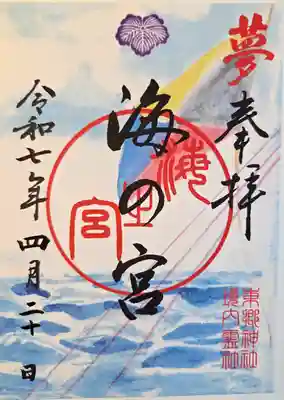 夢
奉拝
東郷神社
境内霊社
海の宮
海
宮
令和七年四月二十日